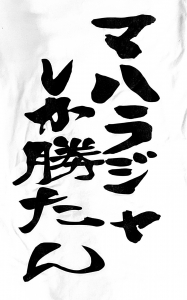 マハラジャ
しか勝たん